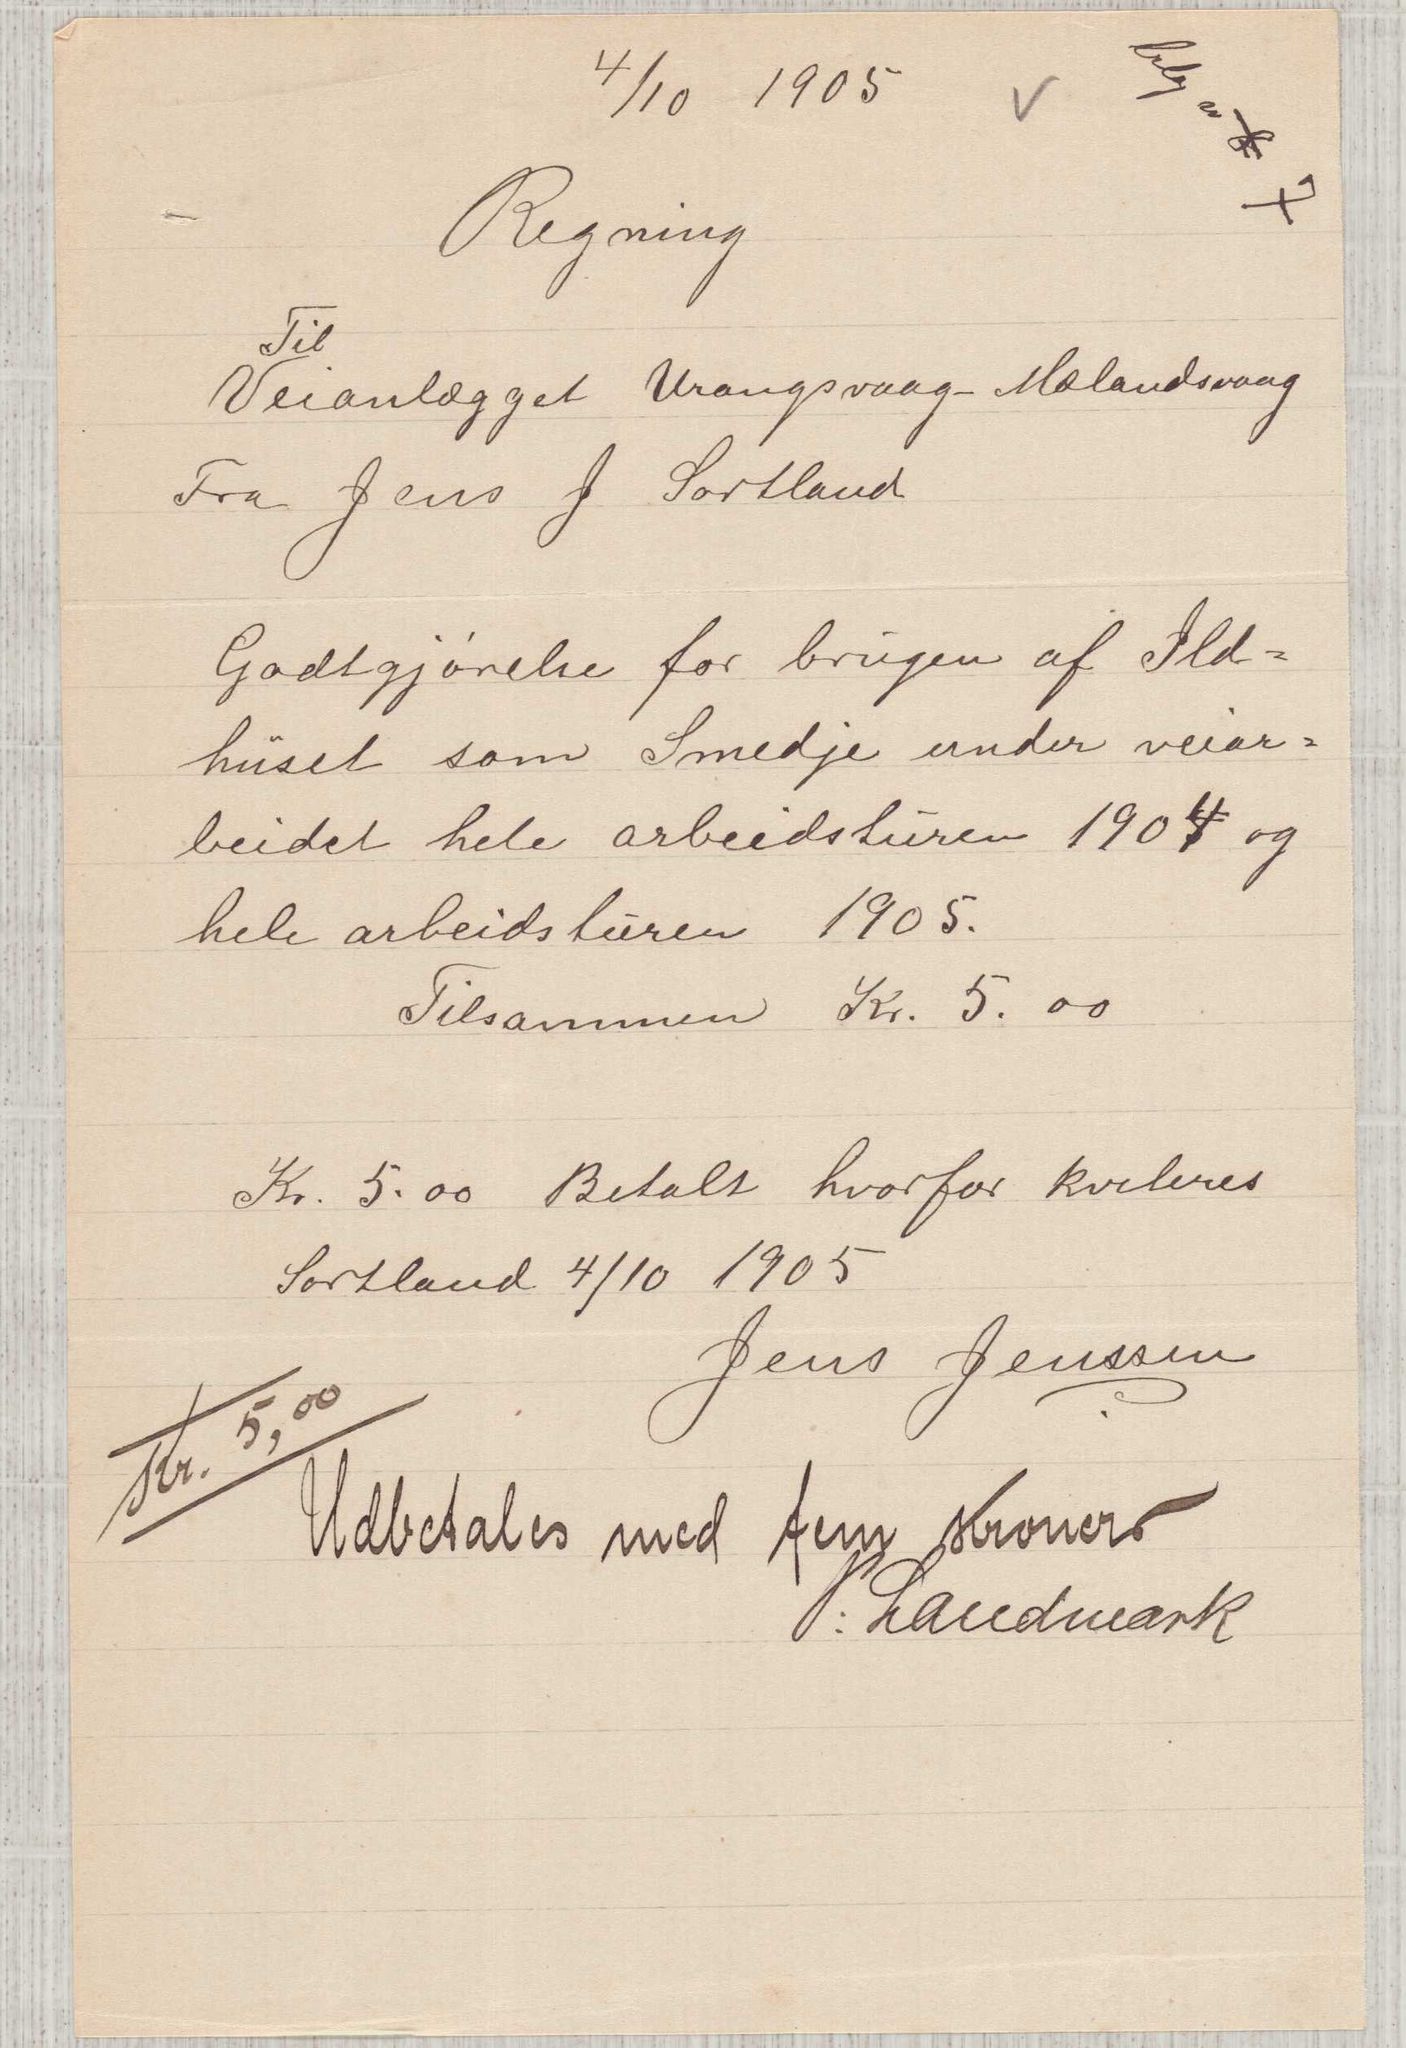 4/10 1905
Regning
Til
Veianlægget Urangsvaag - Mælandsvaag
Fra Jens J Sortland
Godtgjörelse for brugen af Ild=
huset som Smedje under veiar=
beidet hele arbeidsturen 1904 og
hele arbeidsturen 1905.
Tilsammen Kr. 5.00
Kr. 5.00 Betalt hvorfor kviteres
Sortland 4/10 1905
Jens Jenssen
Kr. 5,00
Udbetales med fem kroner
P. Landmark